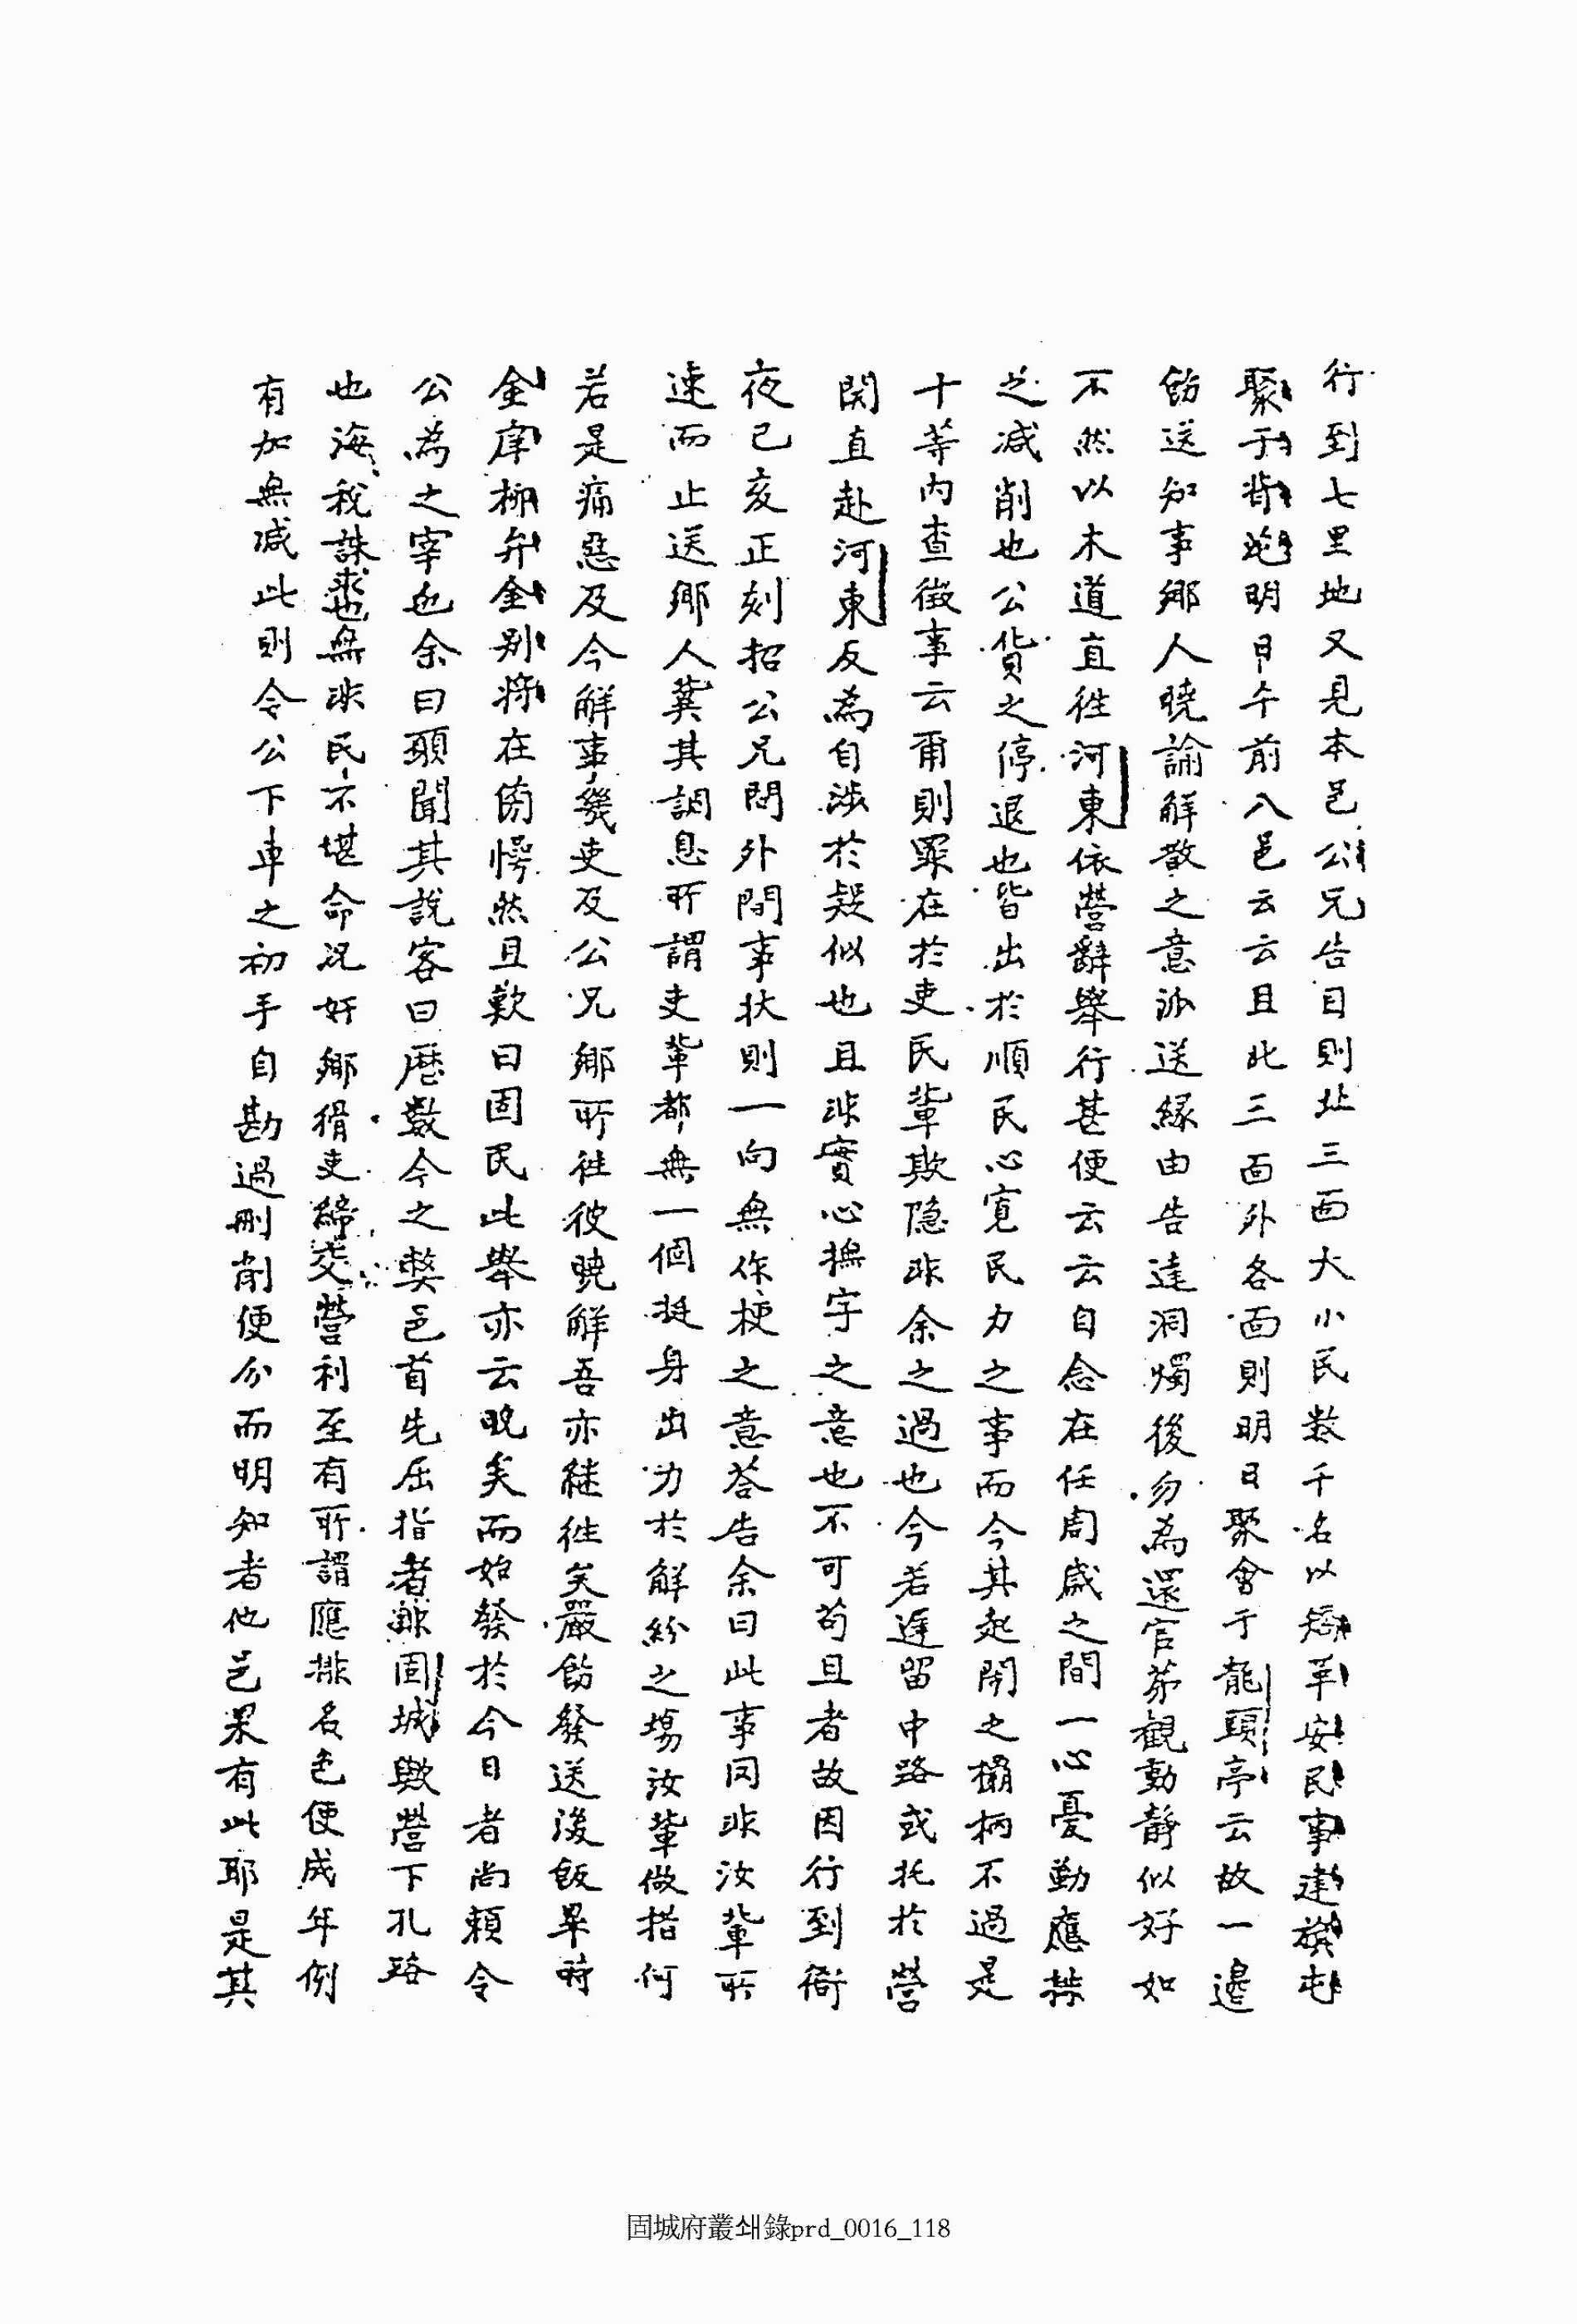 行到七里地又見本邑公兄告目則北三面大小民数千名以矯革安民事建旗屯
聚于背𡶶明日午前入邑云云且此三面外各面則明日聚會于龍頭亭云故一邊
飭送知事鄉人曉諭解散之意派送緣由告達洞燭後勿爲還官第觀動靜似好如
不然以木道直徃河東依營辭舉行甚便云云自念在任周歲之間一心憂勤應㮣
之减削也公貨之停退也皆出於順民心寬民力之事而今其起鬧之欛柄不過是
十等內查徵事云爾則罪在於吏民輩欺隐非余之過也今若遲留中路或托於營
関直赴河東反爲自涉於疑似也且非實心撫字之意也不可苟且者故因行到衙
夜已亥正刻招公兄問外間事狀則一向無作梗之意荅告余曰此事罔非汝輩所
速而止送鄉人冀其調息所謂吏輩都無一個挺身出力於解紛之塲汝輩做措何
若是痛惡及今解事幾吏及公兄鄉所徃彼曉解吾亦継徃矣嚴飭發送後飯畢時
金庠柳弁金别將在傍愕然且歎曰固民此舉亦云晚矣而始發於今日者尚賴令
公爲之宰也余曰願聞其說客曰歷數今之獘邑首先屈指者非固城歟營下孔路
也海稅誅求也無非民不堪命况奸鄉猾吏締交營利至有所謂應排名色便成年例
有加無减此則令公下車之初手自勘過刪削便分而明知者他邑果有此耶是其
固城府叢쇄錄prd_0016_118